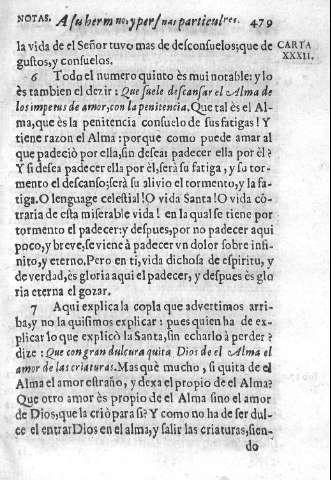 NOTAS. A su herm no, y pers nas particulres. 479
la vida de el Señor tuvo mas de desconsuelos; que de
gustos, y consuelos.
CARTA
XXXII.
6 Todo el numero quinto ès mui notable: y lo
ès tambien el dezir: Que suele descansar el Alma de
los impetus de amor, con la penitencia. Que tal ès el Al-
ma, que ès la penitencia consuelo de sus fatigas! Y
tiene razon el Alma: porque como puede amar al
que padeciò por ella, sin desear padecer ella por èl?
Y si desea padecer ella por èl, serà su fatiga, y su tor-
mento el descanso; serà su alivio el tormento, y la fa-
tiga. O lenguage celestial! O vida Santa! O vida cõ-
traria de esta miserable vida! en la qual se tiene por
tormento el padecer: y despues, por no padecer aqui
poco, y breve, se viene à padecer vn dolor sobre infi-
nito, y eterno. Pero en ti, vida dichosa de espiritu, y
de verdad, ès gloria aqui el padecer, y despues ès glo-
ria eterna el gozar.
7 Aqui explica la copla que advertimos arri-
ba, y no la quisimos explicar: pues quien ha de ex-
plicar lo que explicò la Santa, sin echarlo à perder?
dize: Que con gran dulcura quita Dios de el Alma el
amor de las criaturas. Mas què mucho, si quita de el
Alma el amor estraño, y dexa el propio de el Alma?
Que otro amor ès propio de el Alma sino el amor
de Dios, que la criò para sì? Y como no ha de ser dul-
ce el entrar Dios en el alma, y salir las criaturas, sien-
do